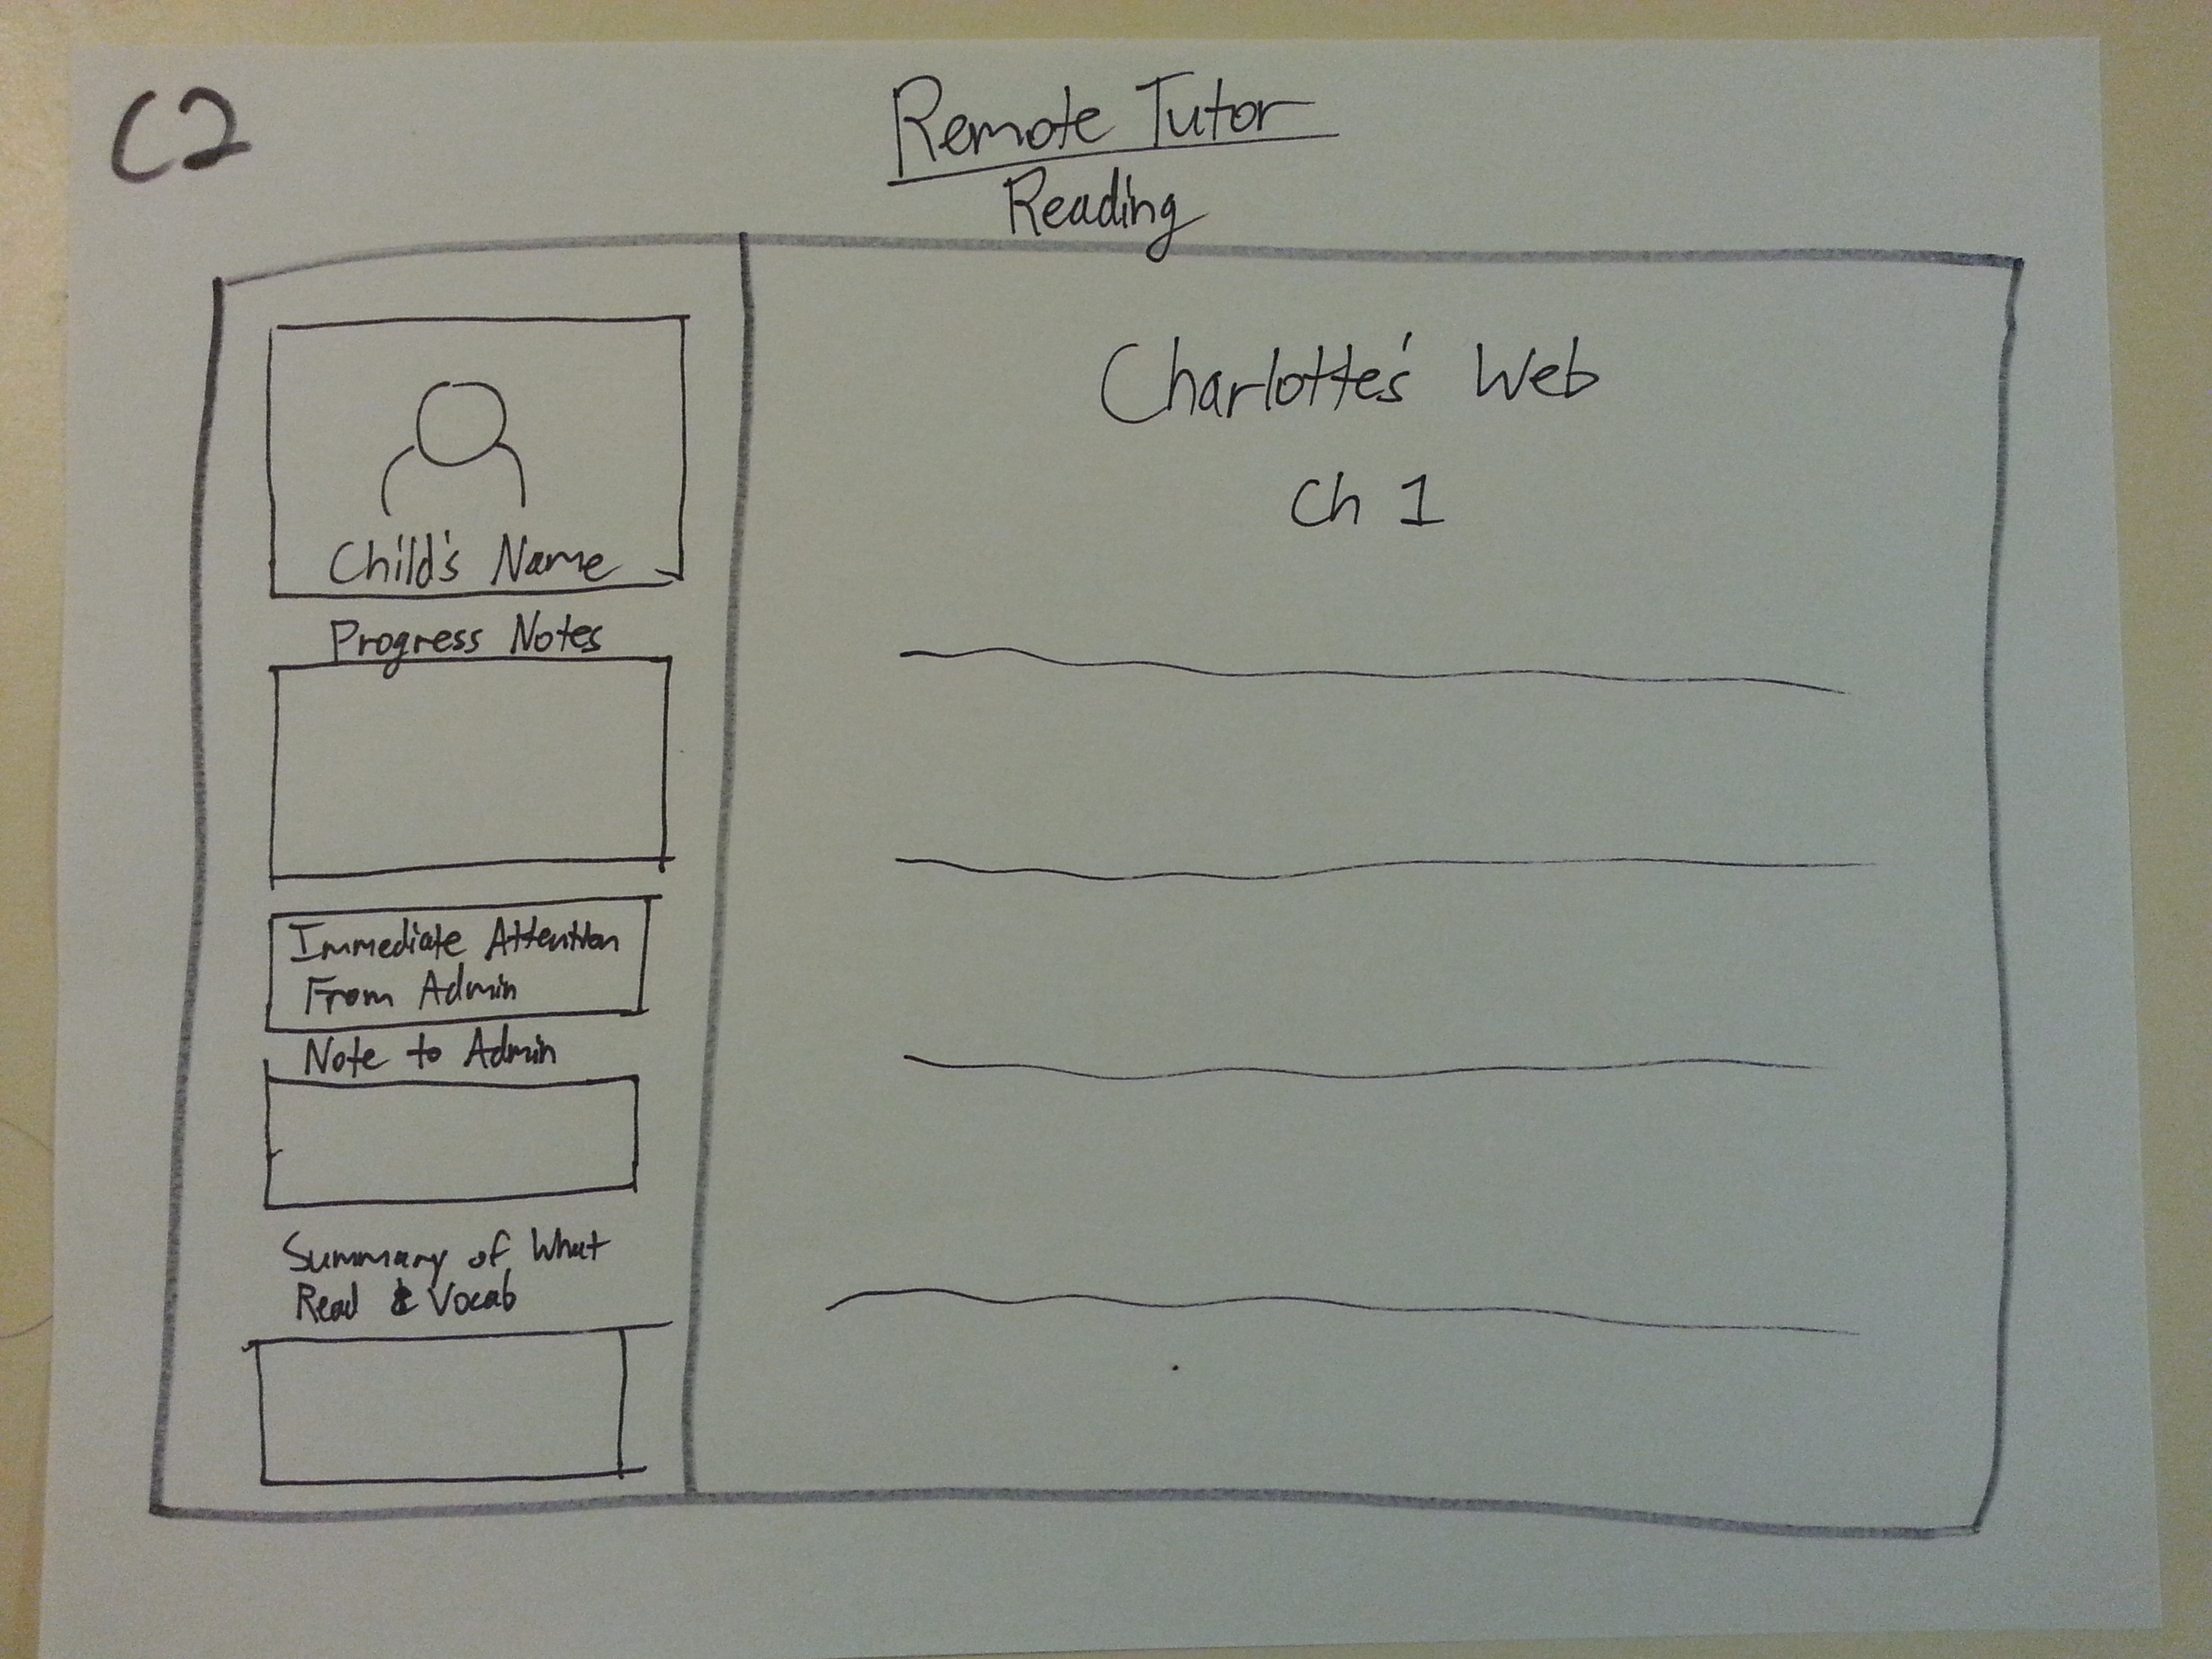 C2
Remote Tutor
Reading
Child's Name
Progress Notes
Immediate Attention
From Admin
Note to Admin
Summary of What
Read & Vocab
Charlotte's Web
Ch 1